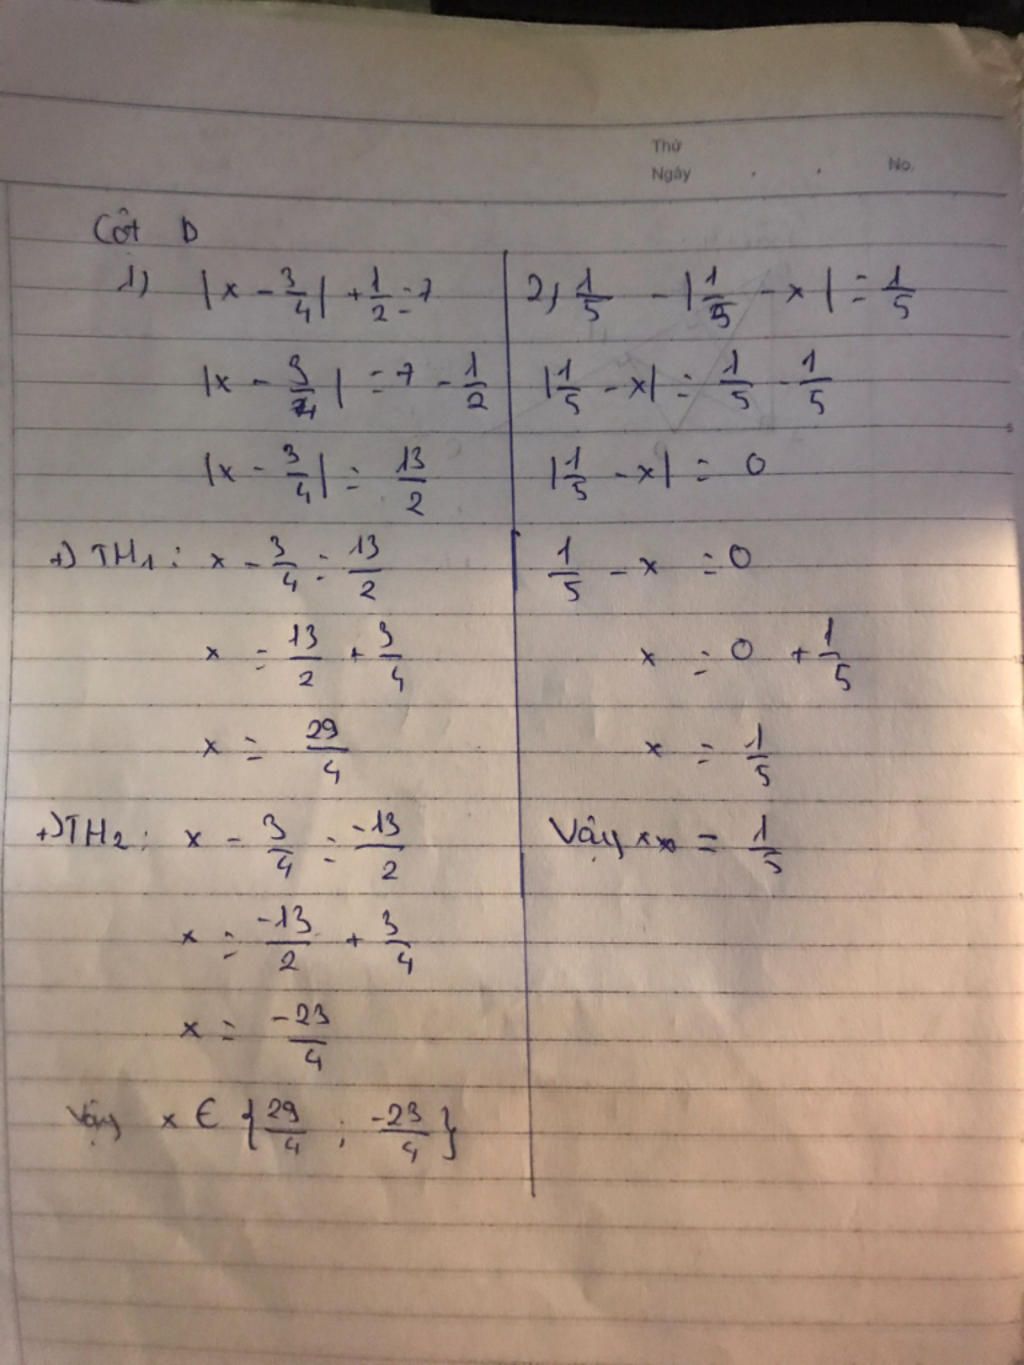 Thứ
Ngày . . No.
Cột D
1) |x - 3/4| + 1/2 = 7
|x - 3/4| = 7 - 1/2
|x - 3/4| = 13/2
+) TH1 : x - 3/4 = 13/2
x = 13/2 + 3/4
x = 29/4
+) TH2 : x - 3/4 = -13/2
x = -13/2 + 3/4
x = -23/4
Vậy x ∈ {29/4 ; -23/4}
2) 1/5 - |1/5 - x| = 1/5
|1/5 - x| = 1/5 - 1/5
|1/5 - x| = 0
1/5 - x = 0
x = 0 + 1/5
x = 1/5
Vậy x = 1/5